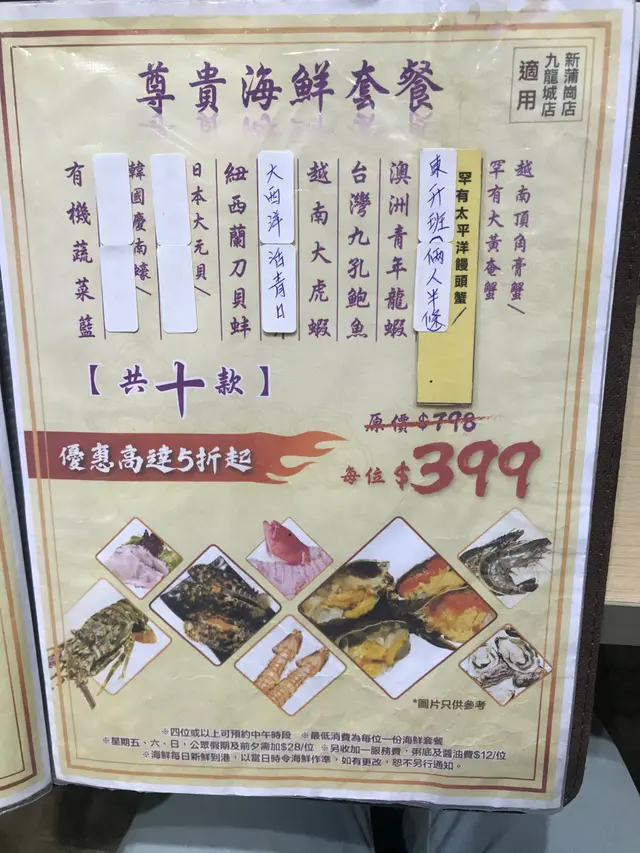 尊貴海鮮套餐
新蒲崗店
九龍城店
適用
越南頂角膏蟹/
罕有大黃奄蟹
罕有太平洋饅頭蟹/
東升斑(倆人半條
澳洲青年龍蝦
台灣九孔鮑魚
越南大虎蝦
大西洋
泊青口
紐西蘭刀貝蚌
日本大元貝/
韓國慶南蠔/
有機蔬菜籃
【共十款】
原價$798
優惠高達5折起
每位$399
*圖片只供參考
※四位或以上可預約中午時段 ※最低消費為每位一份海鮮套餐
※星期五、六、日,公眾假期及前夕需加$28/位 ※另收加一服務費,粥底及醬油費$12/位
※海鮮每日新鮮到港,以當日時令海鮮作準,如有更改,恕不另行通知。